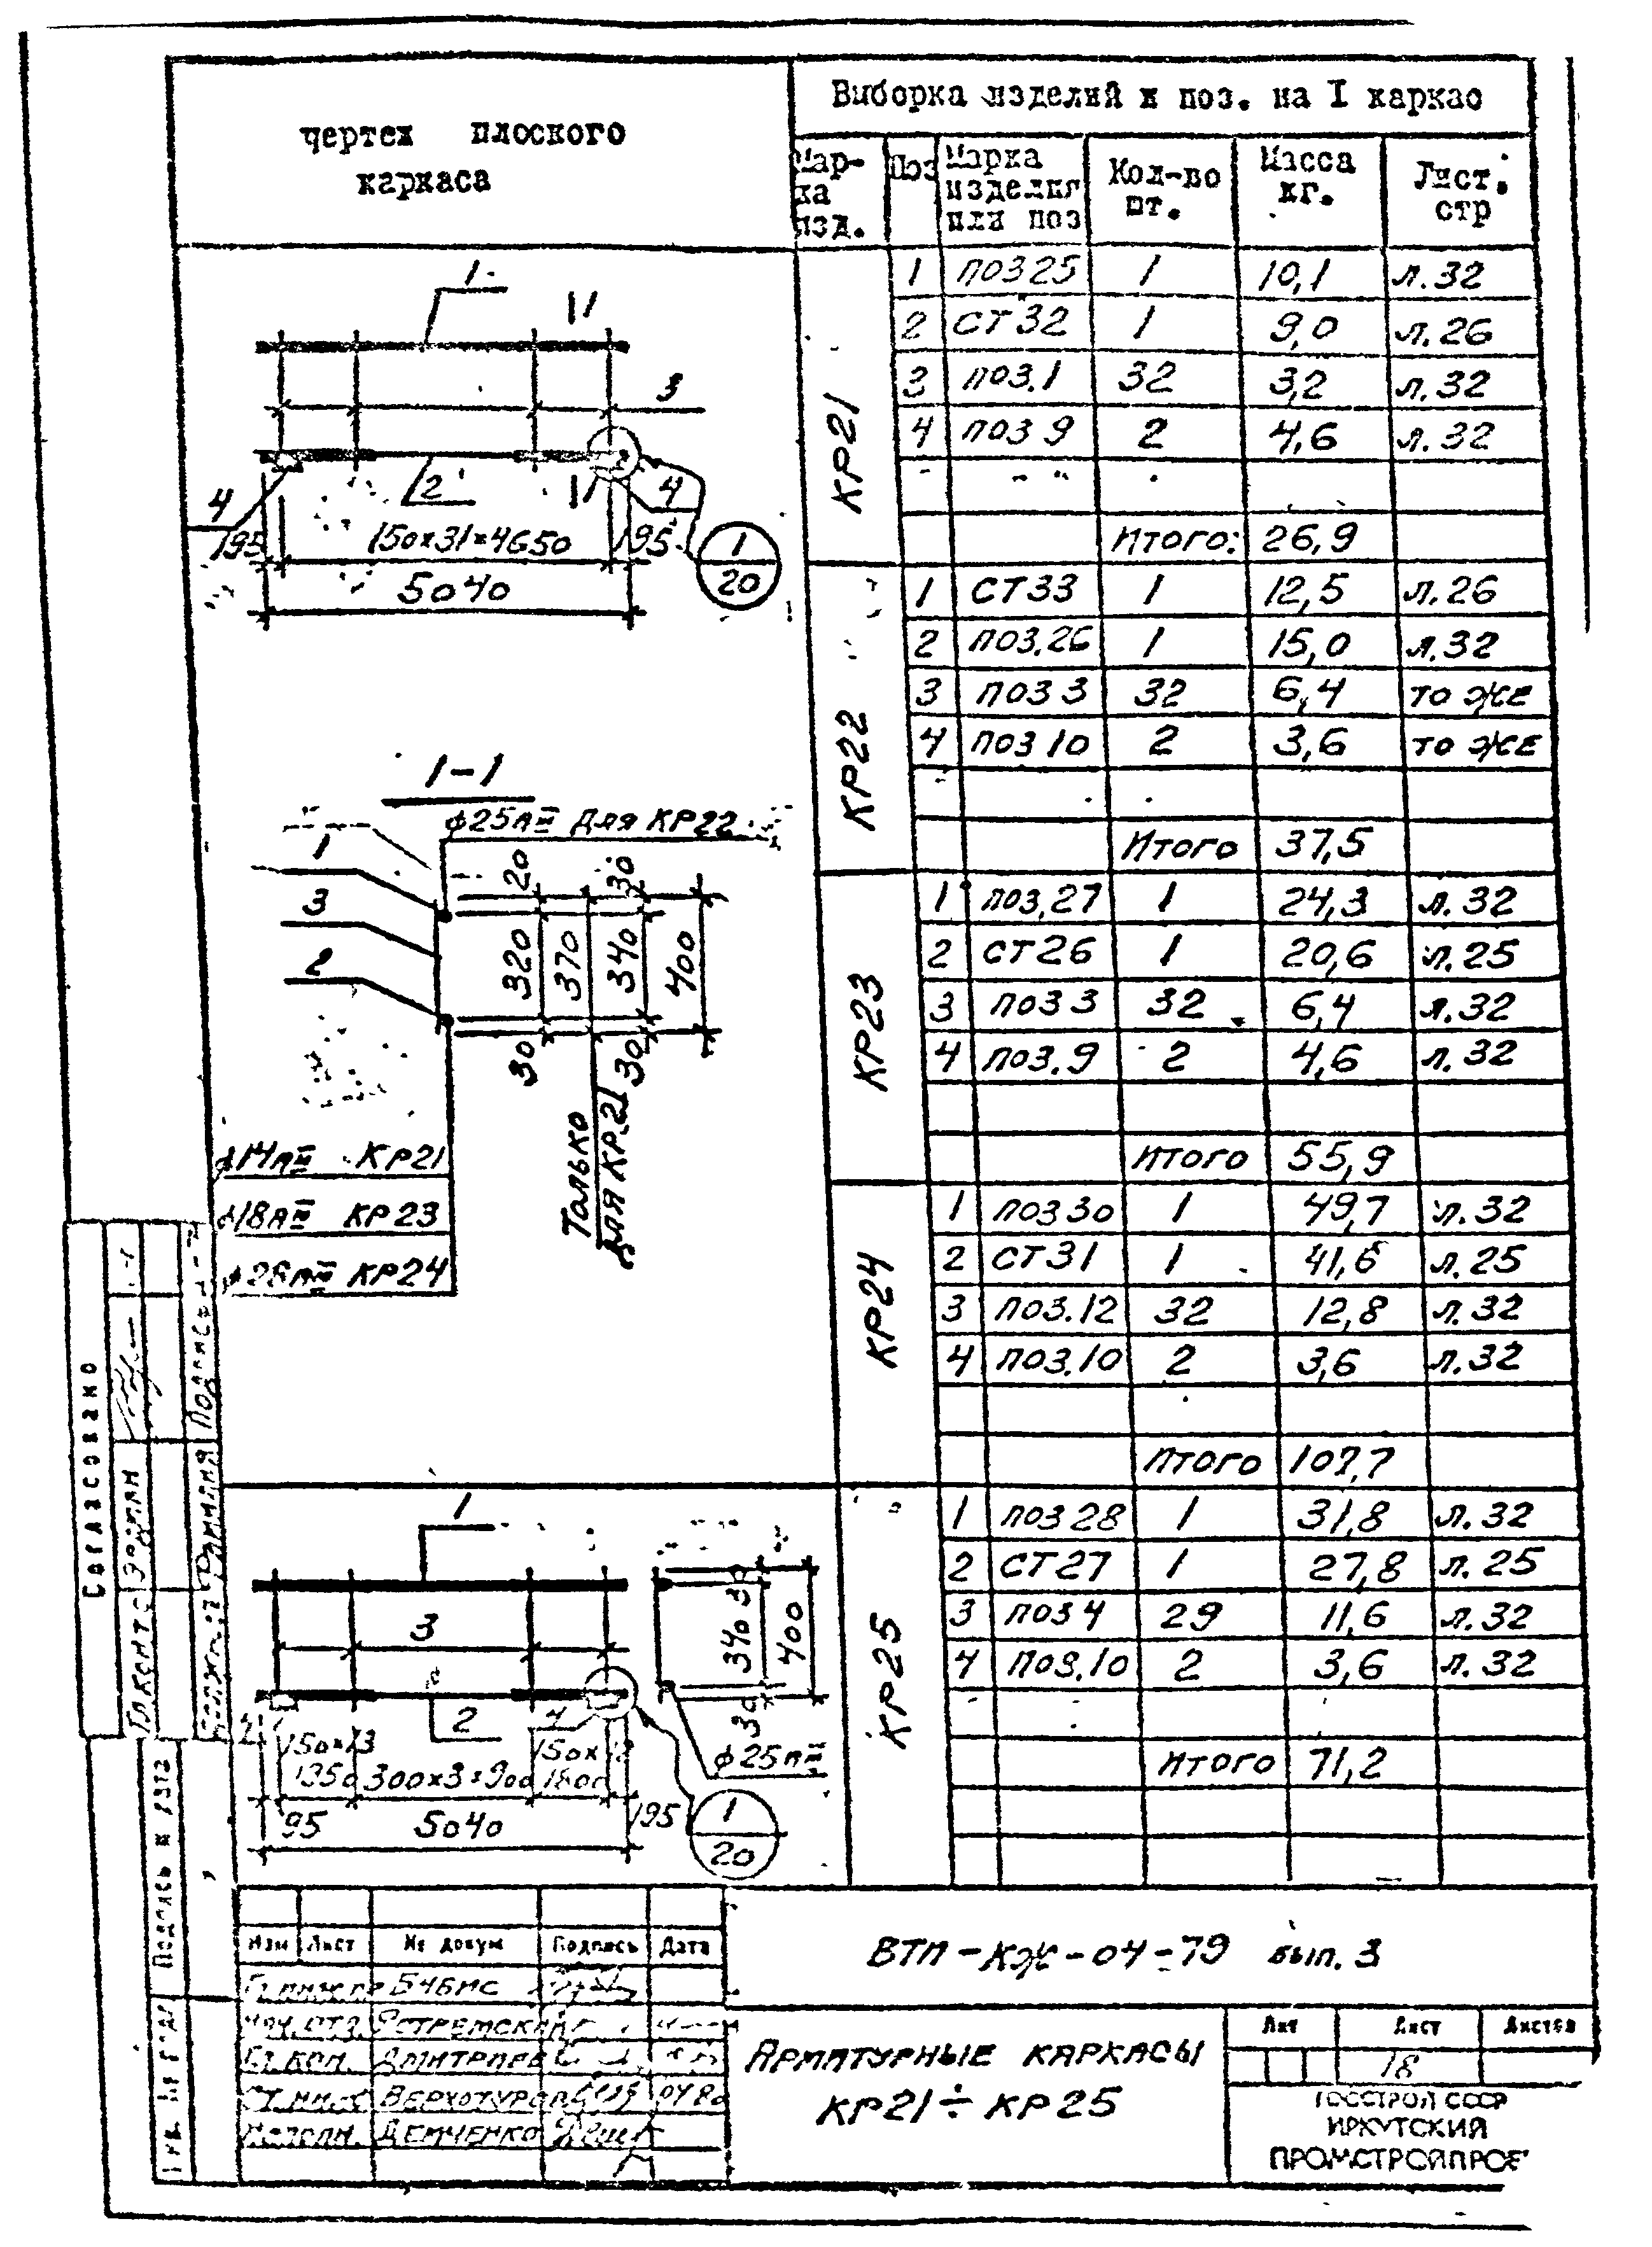 чертеж плоского
каркаса
Выборка изделий и поз. на I каркас
Мар-
ка
изд.
Поз
Марка
изделия
или поз
Кол-во
шт.
Масса
кг.
Лист.
стр
КР21
1 поз 25 1 10,1 л.32
2 СТ 32 1 9,0 л.26
3 поз.1 32 3,2 л.32
4 поз 9 2 4,6 л.32
Итого: 26,9
КР22
1 СТ33 1 12,5 л.26
2 поз.26 1 15,0 л.32
3 поз 3 32 6,4 то же
4 поз 10 2 3,6 то же
Итого 37,5
КР23
1 поз.27 1 24,3 л.32
2 СТ 26 1 20,6 л.25
3 поз 3 32 6,4 л.32
4 поз.9 2 4,6 л.32
Итого 55,9
КР24
1 поз 30 1 49,7 л.32
2 СТ 31 1 41,6 л.25
3 поз.12 32 12,8 л.32
4 поз.10 2 3,6 л.32
Итого 107,7
КР25
1 поз 28 1 31,8 л.32
2 СТ 27 1 27,8 л.25
3 поз 4 29 11,6 л.32
4 поз.10 2 3,6 л.32
Итого 71,2
1
1 1
3
2
4
4
195 150×31=4650 195
5040
1
20
1-1
ф25АIII для КР22
1
3
2
20
30
320
370
340
400
30
30
Только
для КР.21
ф14АIII КР21
ф18АIII КР23
ф28АIII КР24
1
3
2
4
30
340
400
30
ф25АIII
150×13 150×12
1950 300×3=900 1800
195 5040 195
1
20
Согласовано
Гл. конст. Эрдман
Должн. Фамилия Подпись
Подпись и дата
Инв. №
Изм Лист № докум Подпись Дата
Гл.инж.пр
Нач.отд. Ястремский
Гл.кон.
Ст.инж Верхотуров 04 80
Исполн. Демченко
ВТП-КЖ-04-79 вып. 3
Арматурные каркасы
КР21÷КР25
Лит Лист Листов
18
ГОССТРОЙ СССР
ИРКУТСКИЙ
ПРОМСТРОЙПРОЕ